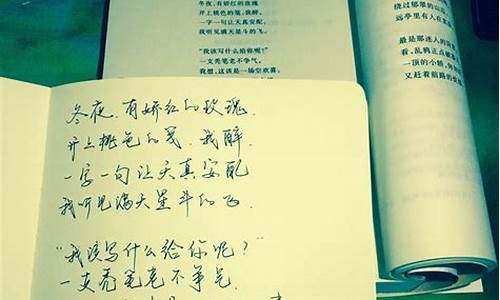 冬夜,有娇红的玫瑰
开上桃色的笺,我醉,
一字一句让天真安配,
我听见满天星斗的飞。
“我该写什么给你呢?”
一支秃笔老不争气,
我想,这该是一场空欢喜。
绕过郁翠的山
远亭里有人在
最是那迷人的
看,乱鸦正点破
一顶的小轿,
又赶着前路的
冬夜,有娇红的玫瑰,
开上桃色的笺,我醉,
一字一句让天真安配
我听见满天星斗的飞
“我该写什么给你呢?”
一支秃笔老不争气,